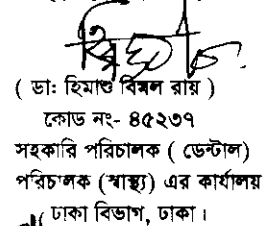 ( ডাঃ হিমাংশু বিমল রায় )
কোড নং- ৪৫২৩৭
সহকারি পরিচালক ( ডেন্টাল)
পরিচালক (স্বাস্থ্য) এর কার্যালয়
ঢাকা বিভাগ, ঢাকা।